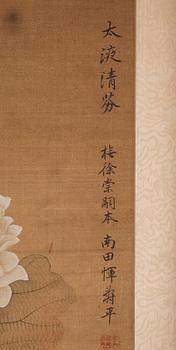 太液清芬
橅徐崇嗣本 南田惲壽平